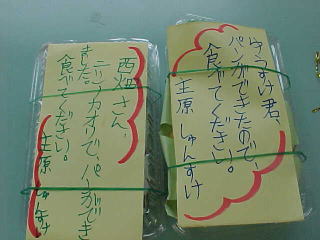 ゆうすけ君、
パンができたので、
食べてください。
主原 しゅんすけ
西畑さん、
ニシノカオリで、パンができ
ました。
食べてください。
主原 しゅんすけ